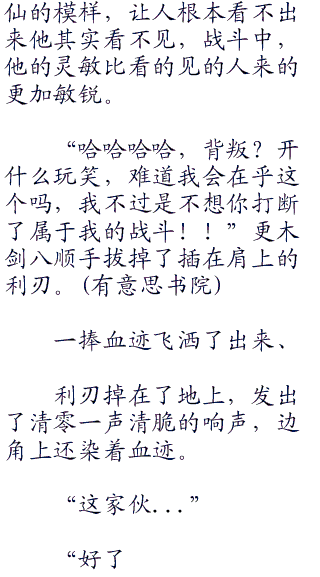 仙的模样，让人根本看不出
来他其实看不见，战斗中，
他的灵敏比看的见的人来的
更加敏锐。
“哈哈哈哈，背叛？开
什么玩笑，难道我会在乎这
个吗，我不过是不想你打断
了属于我的战斗！！”更木
剑八顺手拔掉了插在肩上的
利刃。(有意思书院)
一捧血迹飞洒了出来、
利刃掉在了地上，发出
了清零一声清脆的响声，边
角上还染着血迹。
“这家伙...”
“好了